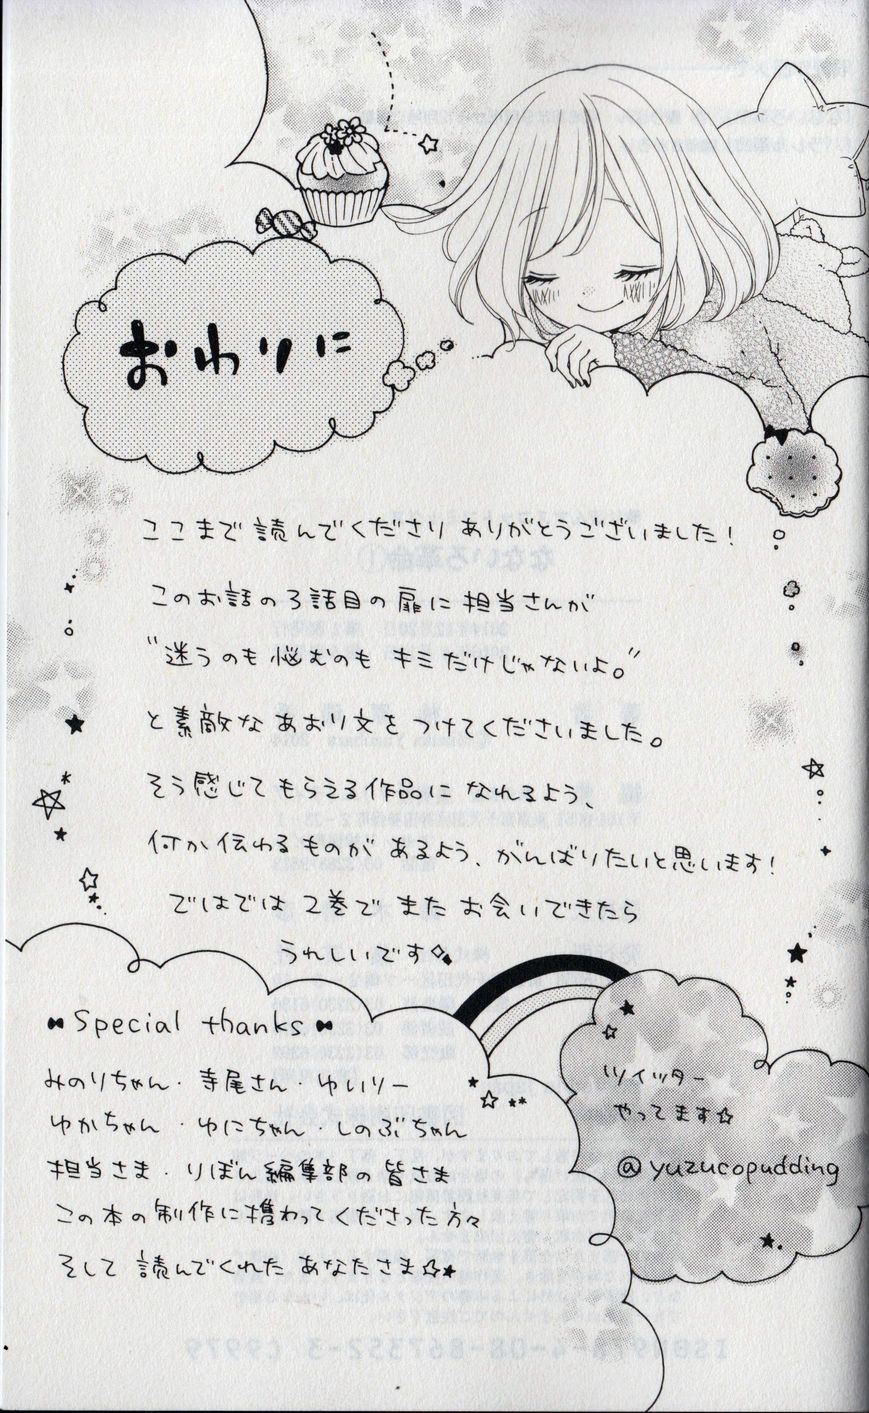 おわりに
ここまで読んでくださりありがとうございました!
このお話の3話目の扉に担当さんが
"迷うのも悩むのもキミだけじゃないよ。"
と素敵なあおり文をつけてくださいました。
そう感じてもらえる作品になれるよう、
何か伝わるものがあるよう、がんばりたいと思います!
ではでは2巻でまたお会いできたら
うれしいです
Special thanks
みのりちゃん・寺尾さん・ゆいりー
ゆかちゃん・ゆにちゃん・しのぶちゃん
担当さま・りぼん編集部の皆さま
この本の制作に携わってくださった方々
そして読んでくれたあなたさま☆★
ツイッター
やってます☆
@yuzucopudding